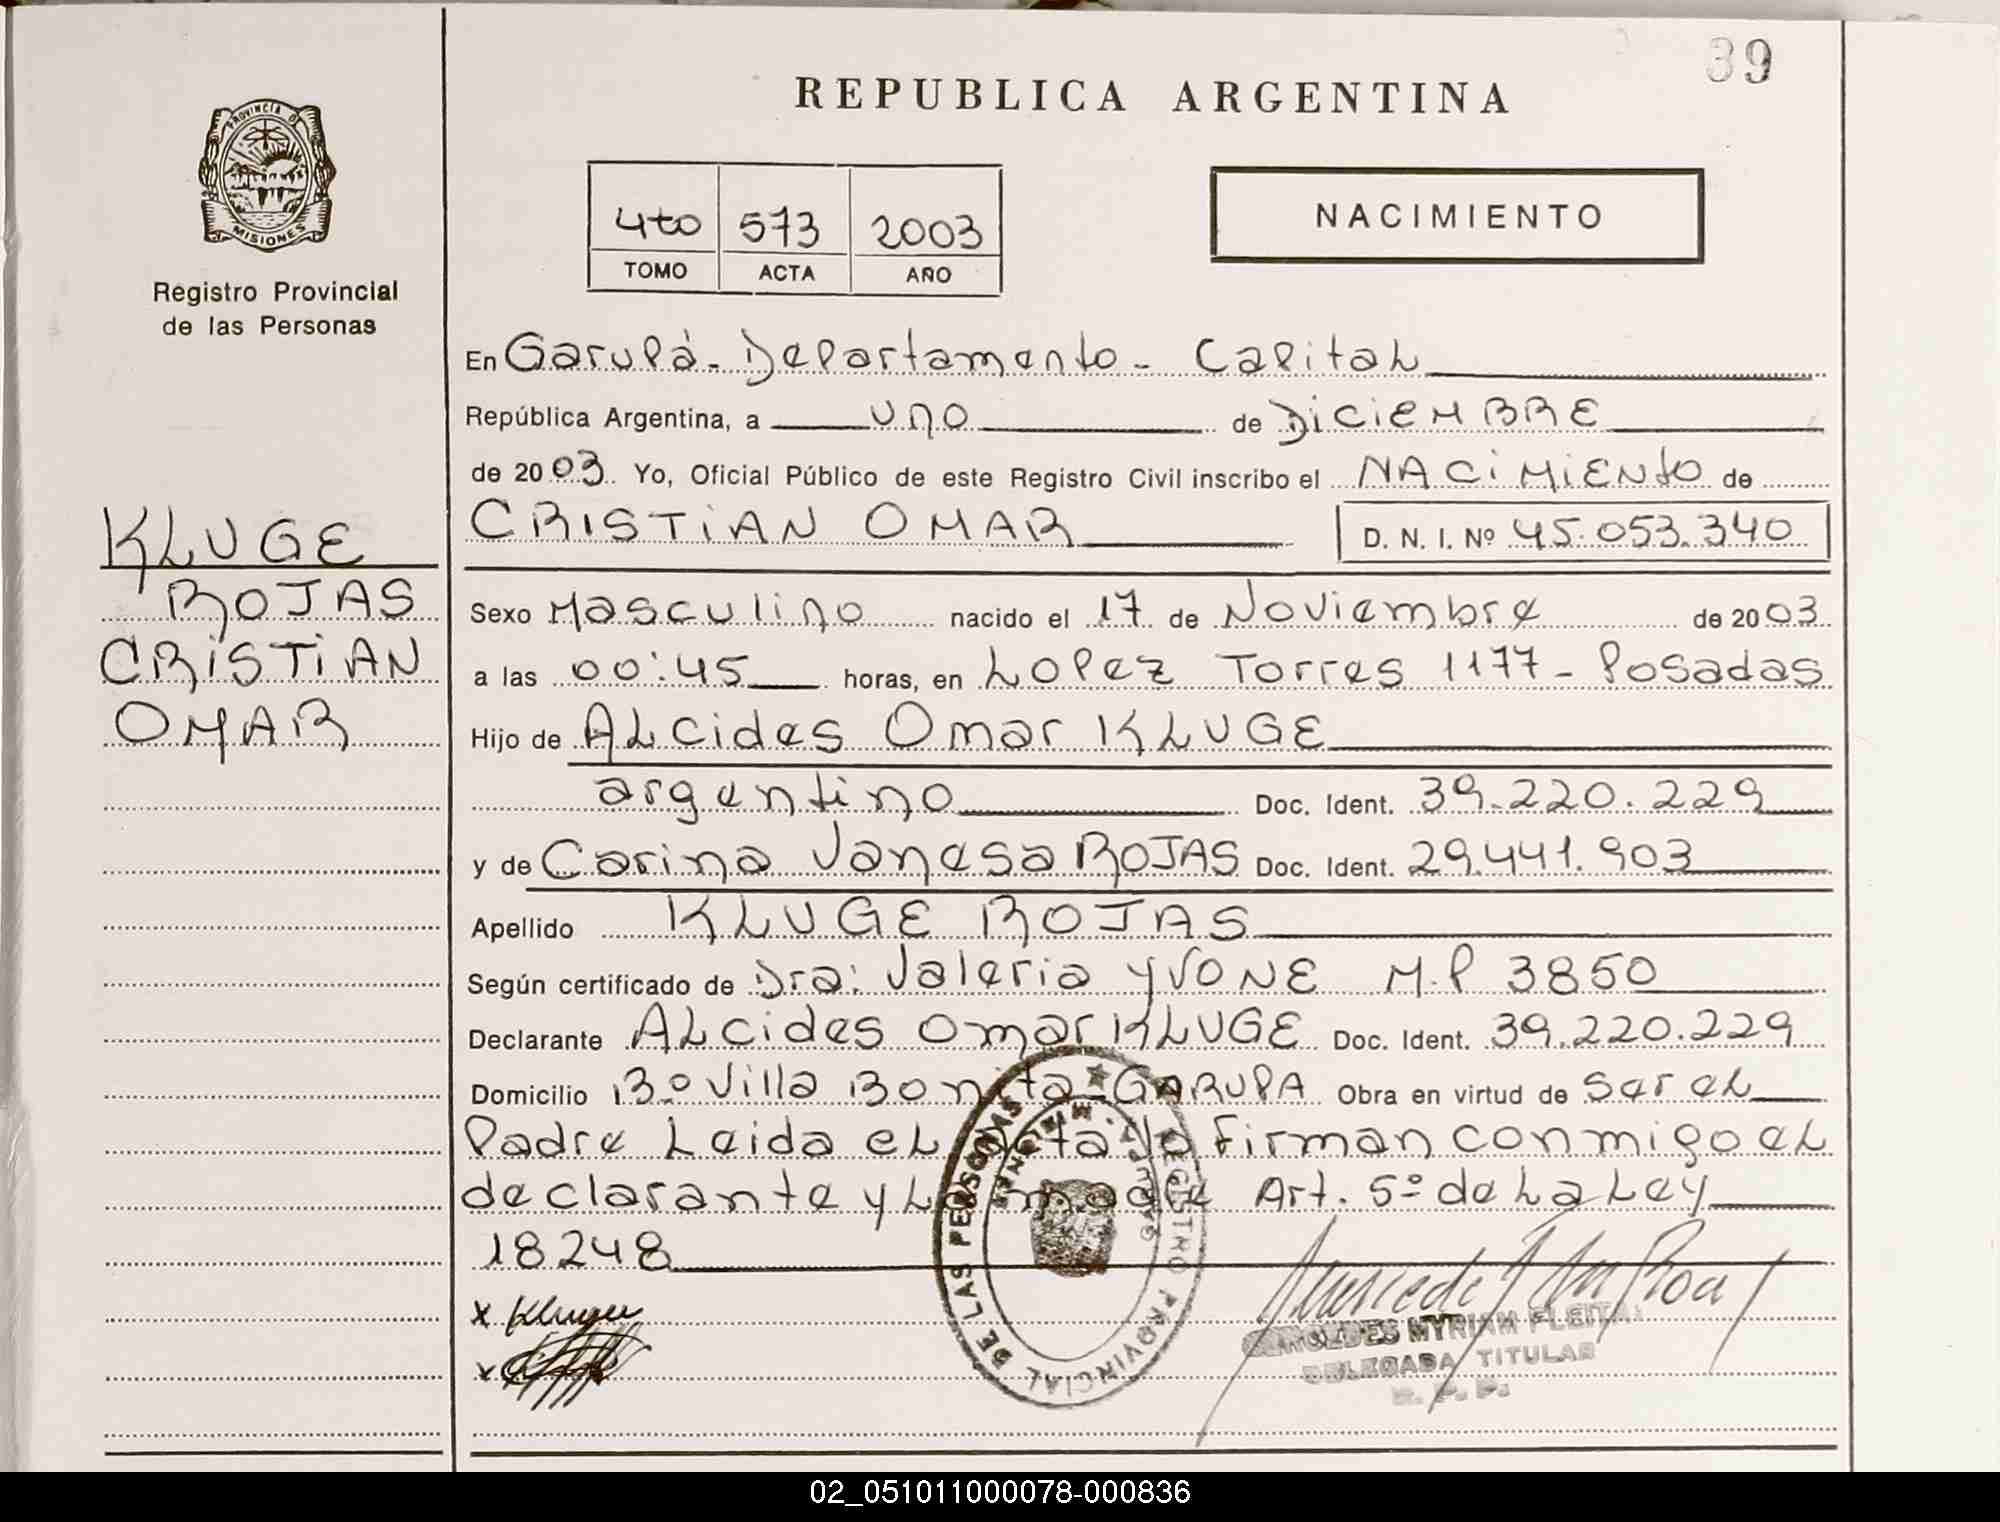 39
REPUBLICA ARGENTINA
PROVINCIA DE
MISIONES
Registro Provincial
de las Personas
4to 573 2003
TOMO ACTA AÑO
NACIMIENTO
En Garupá - Departamento - Capital
República Argentina, a uno de DICIEMBRE
de 2003. Yo, Oficial Público de este Registro Civil inscribo el NACIMIENTO de
CRISTIAN OMAR D. N. I. Nº 45.053.340
KLUGE
ROJAS
CRISTIAN
OMAR
Sexo Masculino nacido el 17 de Noviembre de 2003
a las 00:45 horas, en Lopez Torres 1177 - Posadas
Hijo de Alcides Omar KLUGE
argentino Doc. Ident. 39.220.229
y de Carina Vanesa ROJAS Doc. Ident. 29.441.903
Apellido KLUGE ROJAS
Según certificado de Dra: Valeria YVONE M.P 3850
Declarante Alcides Omar KLUGE Doc. Ident. 39.220.229
Domicilio Bº Villa Bonita - GARUPA Obra en virtud de ser el
Padre Leida el Acta la Firman conmigo el
declarante y la madre Art. 5º de la Ley
18248
x Kluge
x
REGISTRO PROVINCIAL DE LAS PERSONAS
MISIONES
MYRIAM FLEITA
DELEGADA TITULAR
R. P. P.
02_051011000078-000836